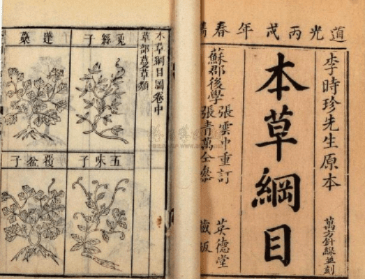 道光丙戌年春
李時珍先生原本
萬方針線並刻
本草綱目
蘇郡後學
張雲中重訂
張青萬仝參
英德堂藏板
本草綱目圖卷中
草部蔓草類
菟絲子
五味子
蓬蘽
覆盆子